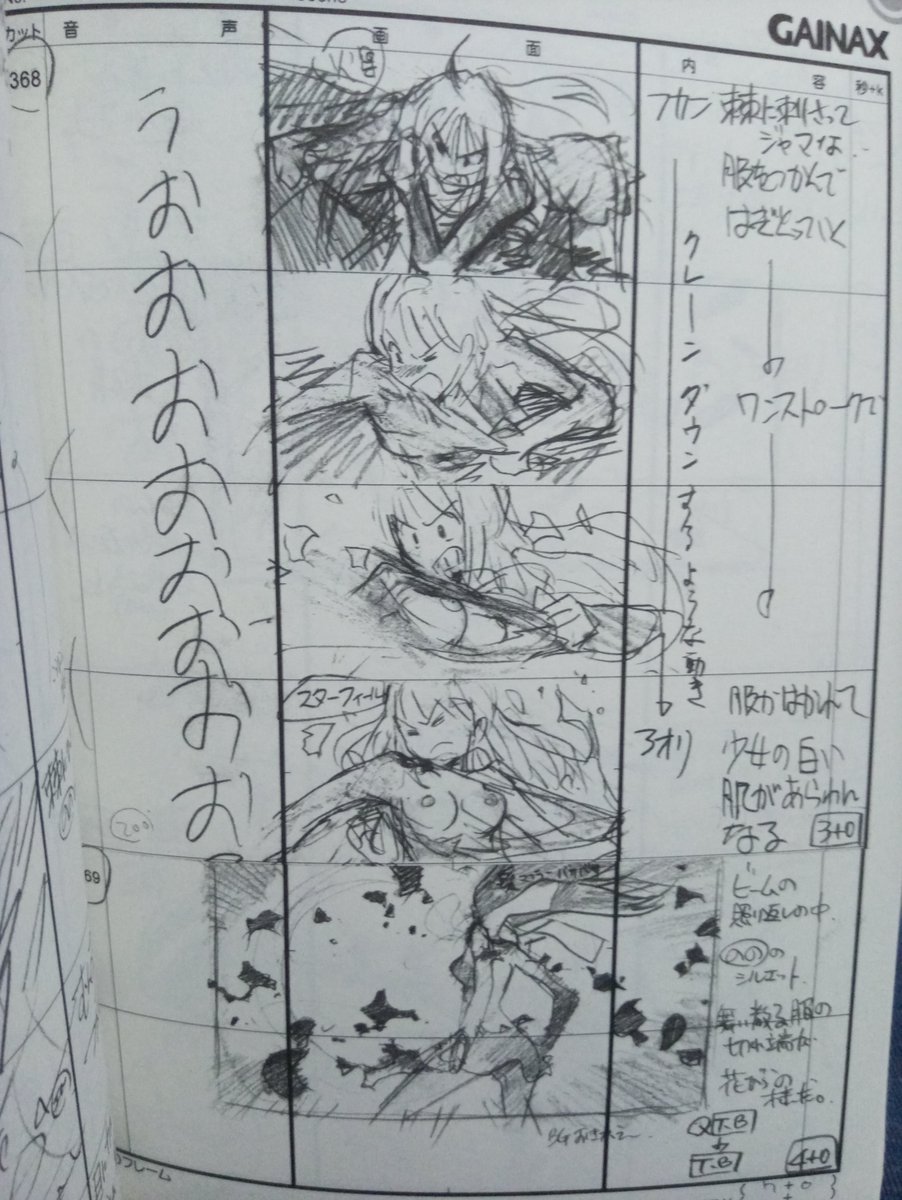 GAINAX
カット
音
声
画
面
内
容
秒+k
368
うおおおおおおおお
フカン
クレーンダウンするような動き
アオリ
棘に刺さって
ジャマな
服をつかんで
はぎとっていく
ワンストロークで
スターフィール
服がはがれて
少女の白い
肌があらわに
なる
3+0
69
マフラーバタバタ
ビームの
照り返しの中
ののの
シルエット
舞い散る服の
切れ端が
花びらの
様だ。
Q.T.B
T.B
4+0
のフレーム